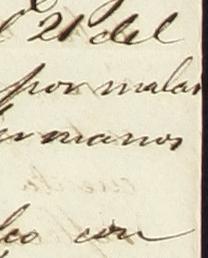 21 del
por malas
ermanos
con